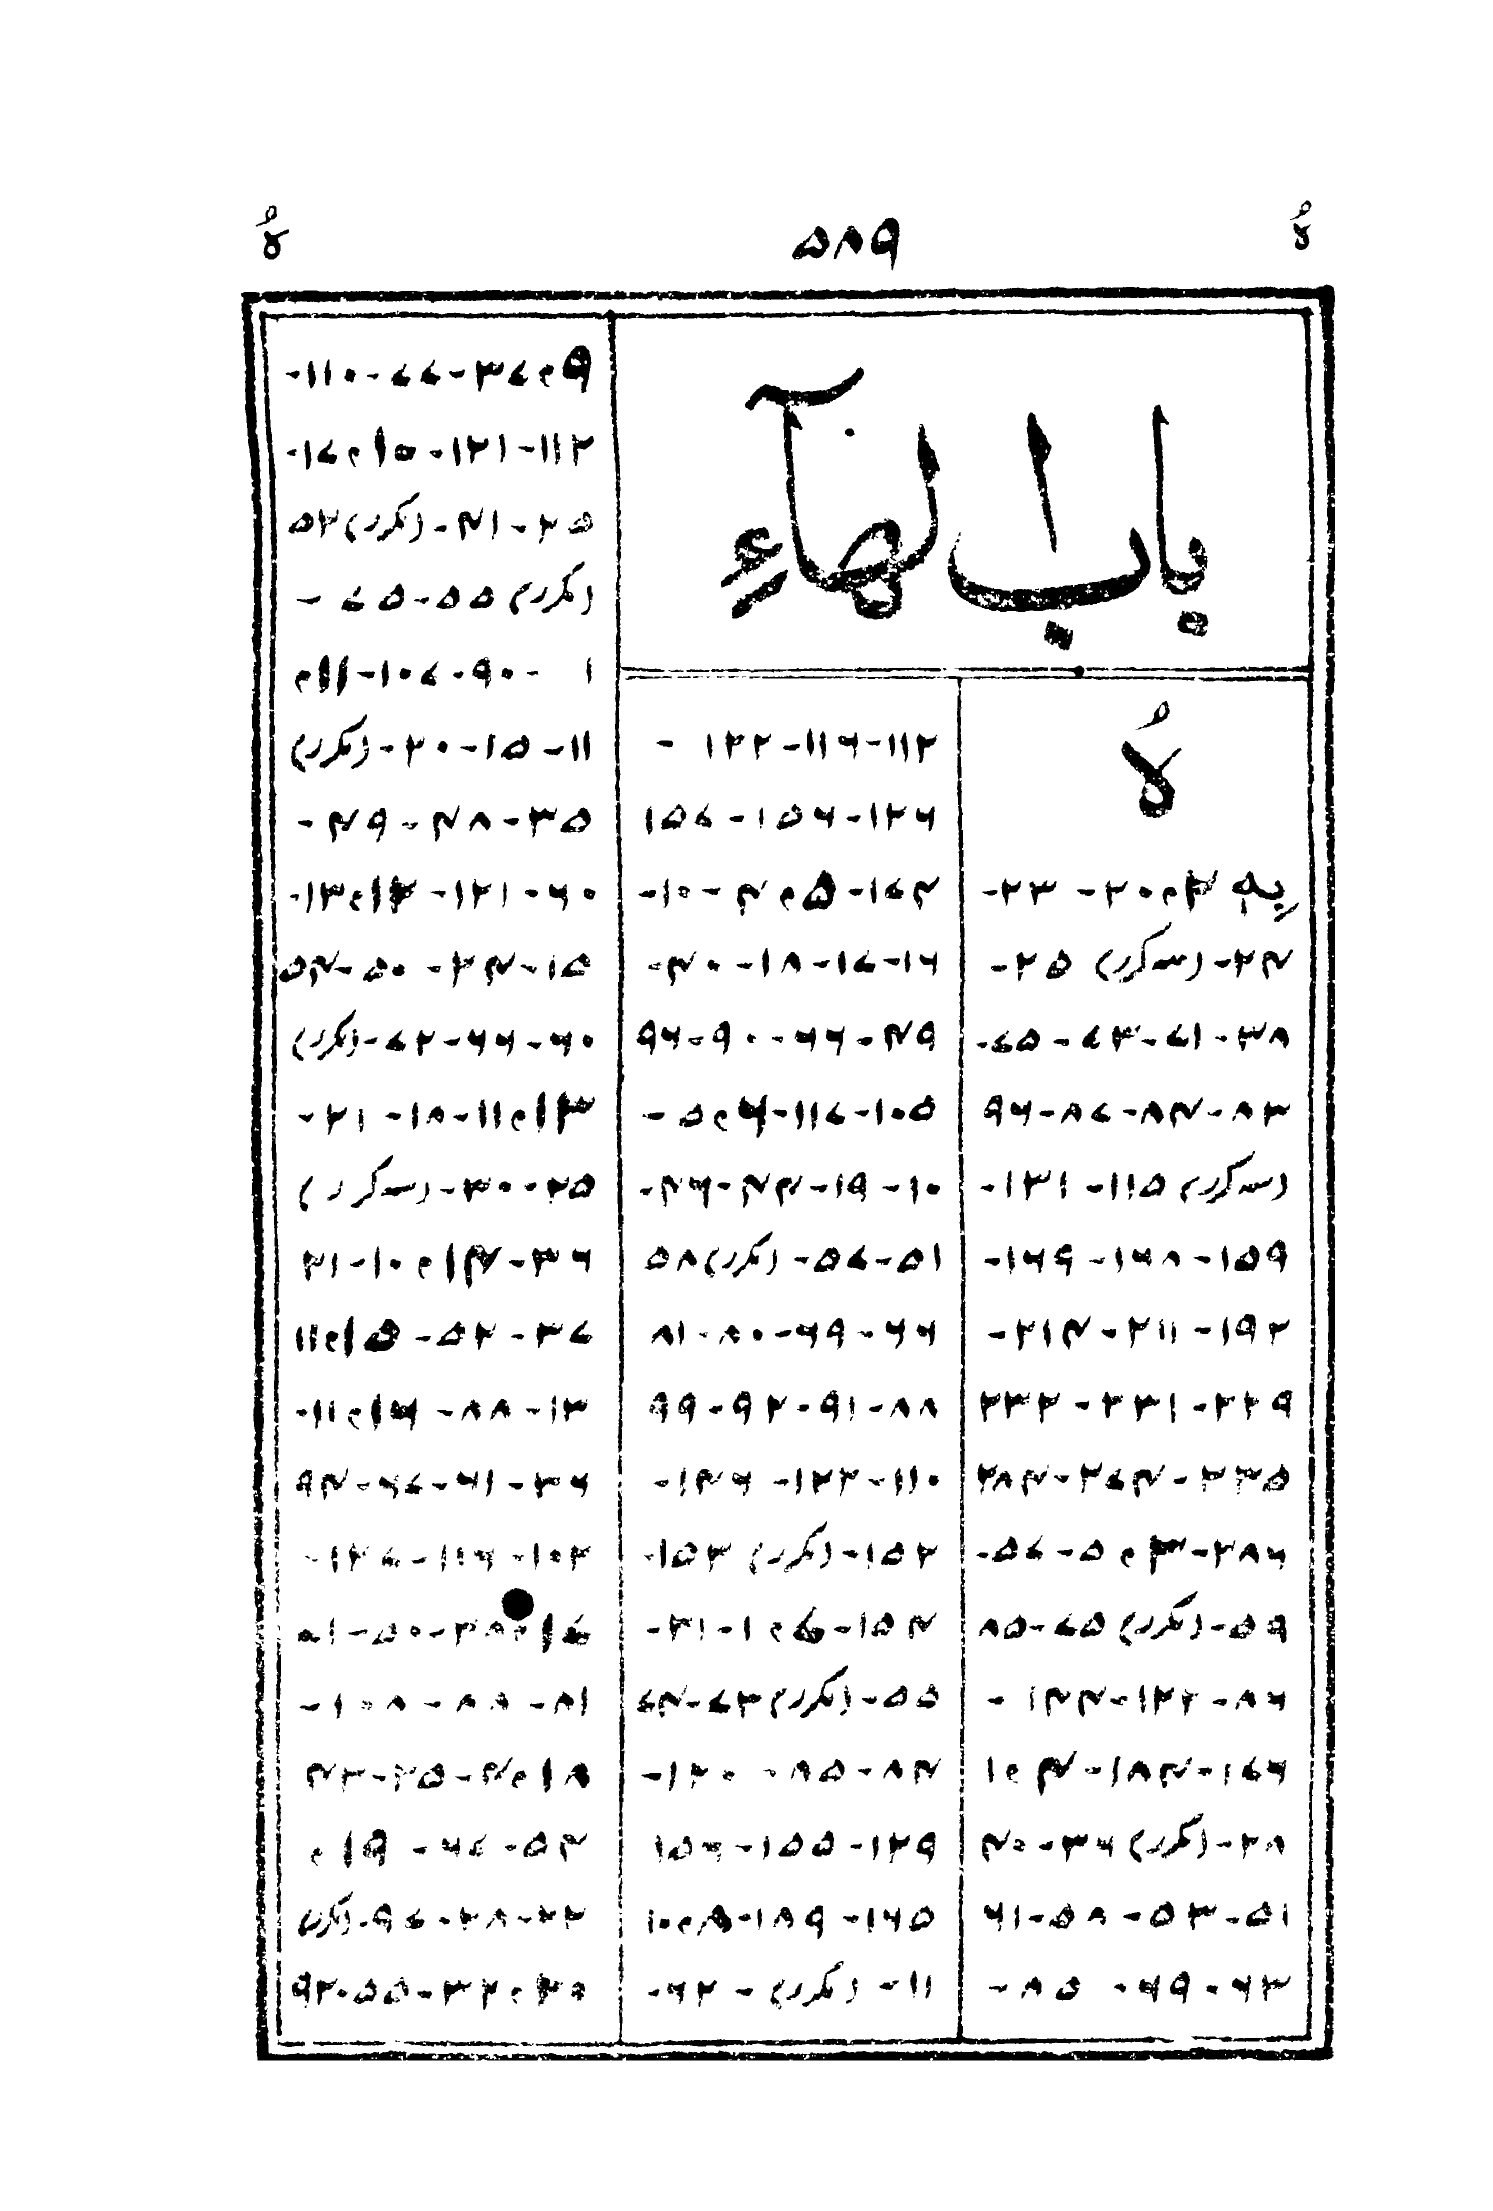 هُ ۵۸۹ هُ
باب الهآء
هُ
بِهٖ ۲م۲۰-۲۳-
۲۴-(سکرر) ۲۵-
۳۸-۷۱-۷۳-۷۵-
۸۳-۸۴-۸۷-۹۶
(سکرر) ۱۱۵-۱۳۱-
۱۵۹-۱۶۸-۱۶۹-
۱۹۲-۲۱۱-۲۱۴-
۲۲۹-۲۳۱-۲۳۲
۲۳۵-۲۷۴-۲۸۴
۲۸۶-۳م۵-۵۷-
۵۹-(مکرر) ۷۵-۸۵
۸۶-۱۲۲-۱۴۴-
۱۷۶-۱۸۴-۴م۱
۲۸-(مکرر) ۳۶-۴۰
۵۱-۵۳-۵۸-۶۱
۶۳-۶۹-۸۵-
۱۱۲-۱۱۶-۱۲۲-
۱۲۶-۱۵۶-۱۵۷
۱۷۴-۵م۴-۱۰-
۱۶-۱۷-۱۸-۴۰-
۴۹-۶۶-۹۰-۹۶
۱۰۵-۱۱۷-۶م۵-
۱۰-۱۹-۴۴-۴۶-
۵۱-۵۷-(مکرر) ۵۸
۶۶-۶۹-۸۰-۸۱
۸۸-۹۱-۹۲-۹۹
۱۱۰-۱۲۲-۱۴۶-
۱۵۲-(مکرر) ۱۵۳-
۱۵۴-۷م۱-۲۱-
۵۵-(مکرر) ۷۳-۷۴
۸۴-۸۵-۱۲۰-
۱۲۹-۱۵۵-۱۵۶
۱۶۵-۱۸۹-۸م۱۰
۱۱-(مکرر)-۶۲-
۹م۳۷-۷۷-۱۱۰-
۱۱۲-۱۲۱-۱۰م۱۷-
۲۵-۴۱-(مکرر) ۵۲
(مکرر) ۵۵-۷۵-
۱-۹۰-۱۰۷-۱۱م
۱۱-۱۵-۲۰-(مکرر)
۳۵-۴۸-۴۹-
۶۰-۱۲۱-۱۲م۱۳-
۱۵-۲۴-۵۰-۵۴
۶۰-۶۶-۷۲-(مکرر)
۱۳م۱۱-۱۸-۲۱-
۲۵-۳۰-(سکرر)
۳۶-۱۴م۱۰-۲۱
۳۷-۵۲-۱۵م۱۱
۱۳-۸۸-۱۶م۱۱-
۳۶-۶۱-۶۷-۹۴
۱۰۲-۱۱۶-۱۲۷-
۱۷م۳۸-۵۰-۵۱
۸۱-۸۸-۱۰۸-
۱۸م۴-۲۵-۴۳
۵۴-۶۷-۱۹م
۲۲-۲۸-۹۷-(مکرر)
۲۰م۲۲-۵۵-۹۲